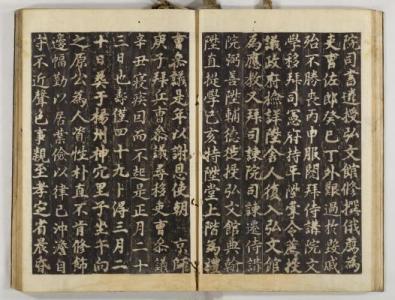 院司書遷授弘文館修撰俄薦為
吏曹佐郎癸巳丁外艱過於毀戚
殆不勝喪丙申服闋拜侍講院文
學移拜司憲府持平陞掌令薦授
議政府撿詳陞舍人復入弘文館
為應教又拜司諫院司諫還侍講
院弼善陞輔德徙授弘文館典翰
陞直提學己亥特陞堂上階為禮
曹參議是年以謝恩使朝 京師
庚子拜兵曹參議尋移吏曹參議
辛丑寢疾因而不起是正月二十
三日也壽僅四十九卜得三月二
十日葬于楊州神穴里子坐午向
之原公為人資性朴直不肯修飾
邊幅勤以居業儉以律己沖澹自
守不近聲色事親至孝定省晨昏